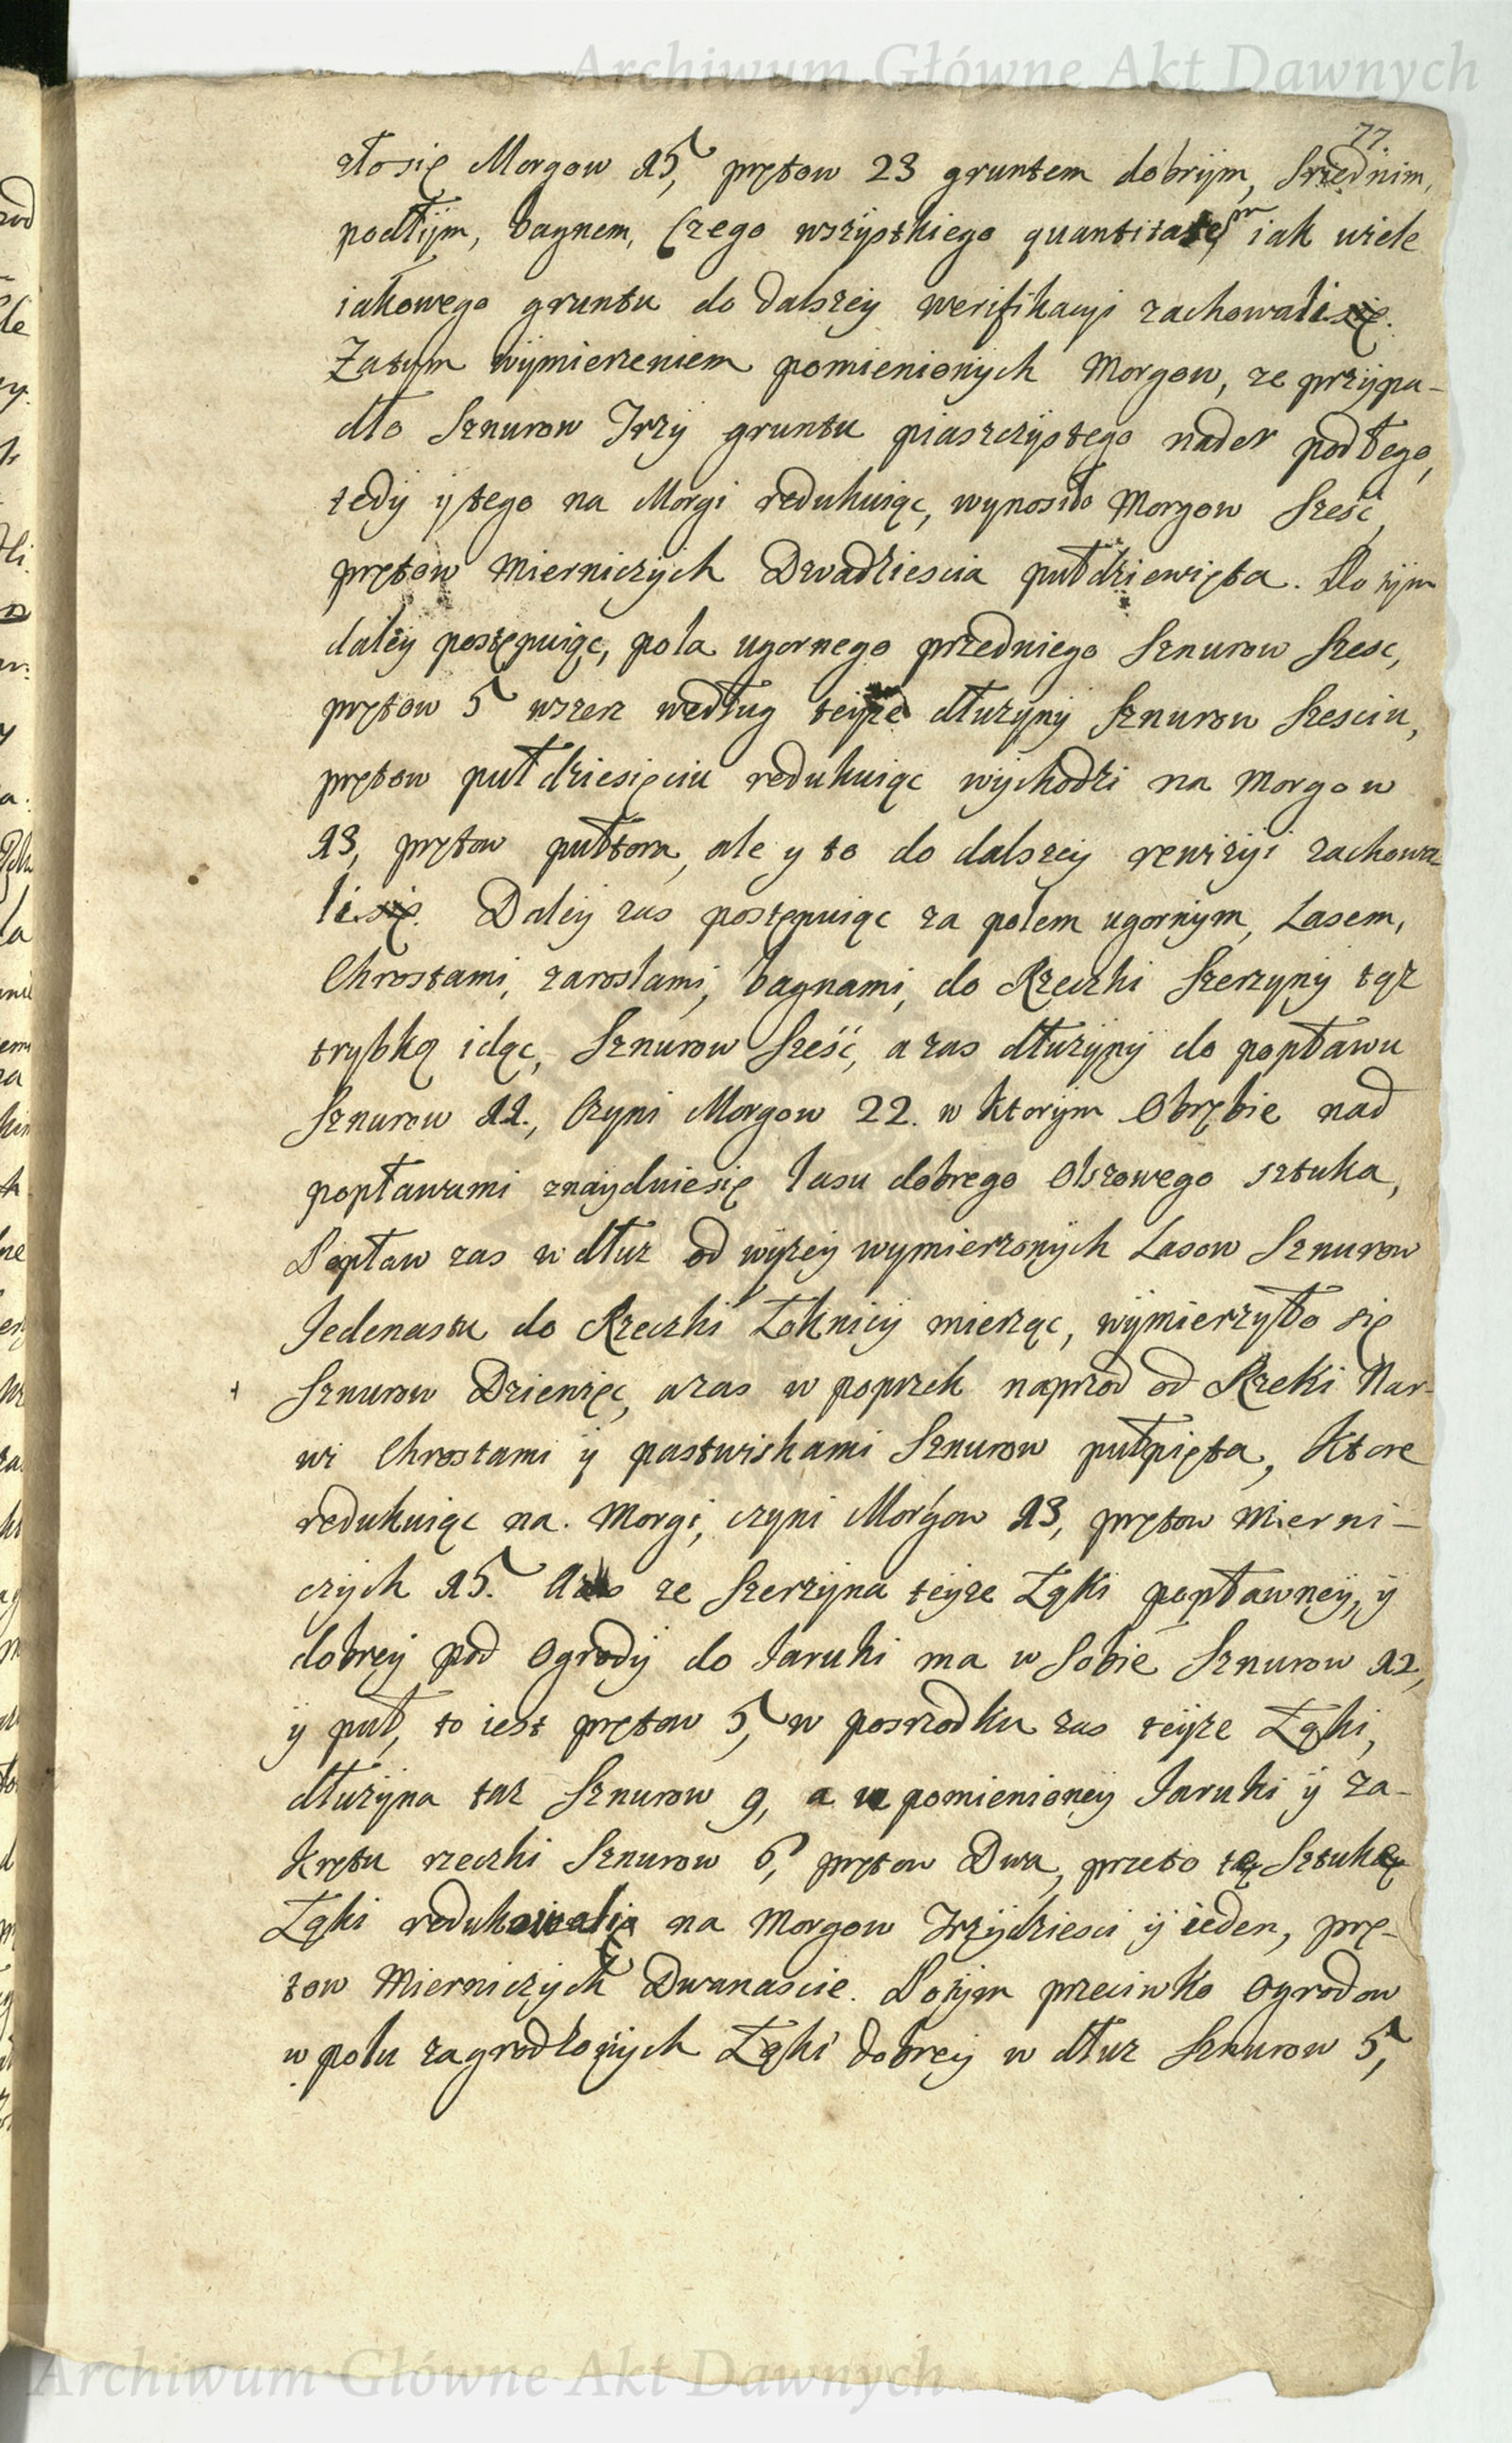 Archiwum Główne Akt Dawnych
77.
ało się Morgow 15, prętow 23 gruntem dobrym, srzednim,
podłym, bagnem, Czego wszystkiego quantitatem iak wiele
iakowego gruntu do dalszey werifikacyi zachowali się.
Zatym wymierzeniem pomienionych Morgow, ze przypa-
dło Sznurow Trzy gruntu piaszczystego nader podłego,
tedy y tego na Morgi redukuiąc, wynosiło Morgow Sześć,
prętow Mierniczych Dwadziescia pułdziewięta. Po tym
daley postępuiąc, pola ugornego przedniego Sznurow Szesc,
prętow 5 wszerz według teyże dłużyny Sznurow Szesciu,
prętow puł dziesięciu redukuiąc wychodzi na Morgow
13, prętow pułtora, ale y to do dalszey rewizyi zachowa-
li się. Daley zas postępuiąc za polem ugornym, Lasem,
Chrostami, zaroslami, bagnami, do Rzeczki Szerzyny tąż
trybką idąc, Sznurow Sześć, a zas dłużyny do popławu
Sznurow 11., Czyni Morgow 22. w ktorym Obrębie nad
popławami znayduie się lasu dobrego Olszowego sztuka,
Popław zas w dłuz od wyżey wymierzonych Lasow Sznurow
Jedenastu do Rzeczki Łoknicy mierząc, wymierzyło się
+ Sznurow Dziewięc, a zas w poprzek naprzod od Rzeki Nar-
wi Chrostami y pastwiskami Sznurow pułpięta, Ktore
redukuiąc na Morgi, czyni Morgow 13, prętow Mierni-
czych 15. A zas ze Szerzyna teyze Łąki popławney, y
dobrey pod Ogrody do Jaruki ma w Sobie Sznurow 12,
y puł, to iest prętow 5, w posrzodku zas teyze Łąki,
dłużyna taz Sznurow 9, a w pomienioney Jaruki y za-
krętu rzeczki Sznurow 6, prętow Dwa, przeto tę Sztukę
Łąki redukowali na Morgow Trzydziesci y ieden, prę-
tow Mierniczych Dwanascie. Potym przeciwko Ogrodow
w polu zagrodzonych Łąki dobrey w dłuz Sznurow 5,
Archiwum Główne Akt Dawnych